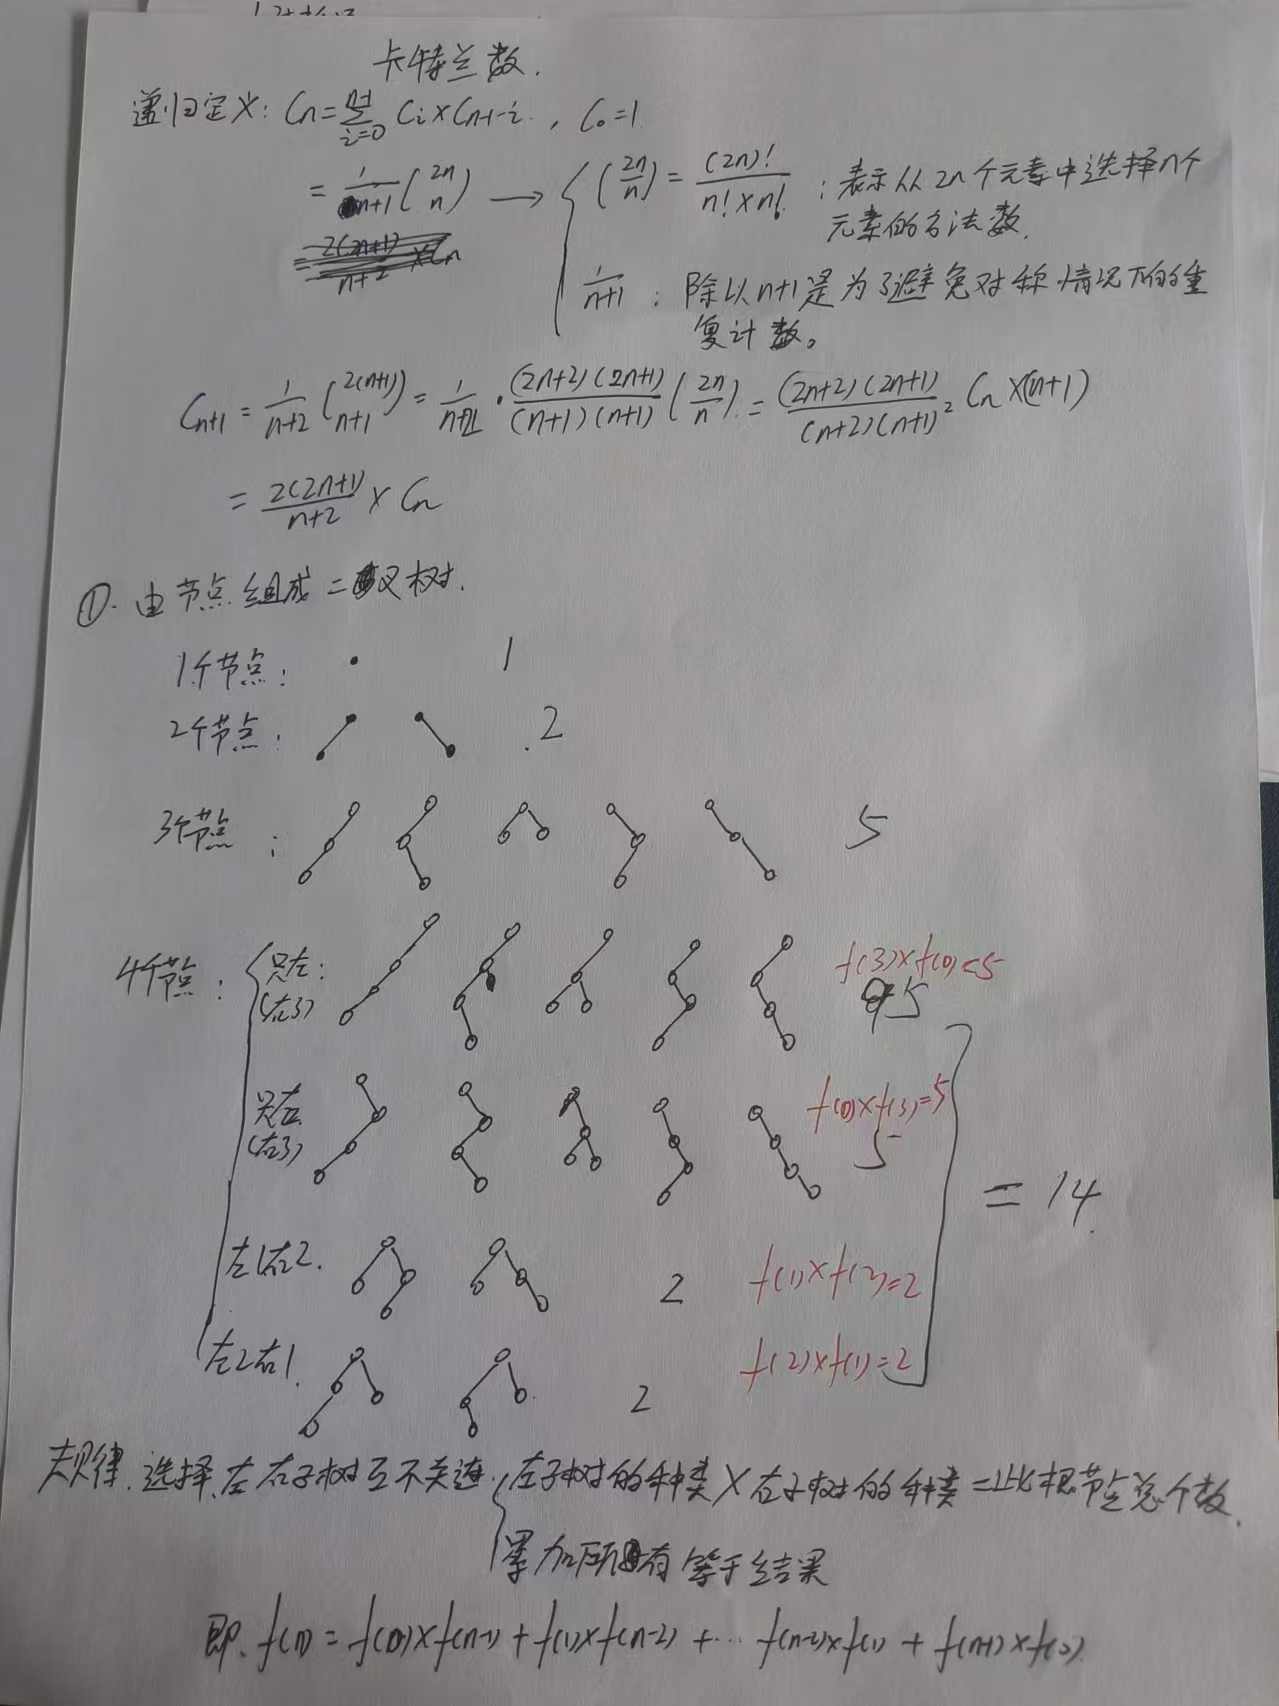 卡特兰数.
递归定义: Cn=∑_{i=0}^{n-1} Ci×Cn-1-i , C0=1
= 1/(n+1) (2n n) → { (2n n) = (2n)!/(n!×n!) : 表示从2n个元素中选择n个
元素的方法数.
1/(n+1) : 除以n+1是为了避免对称情况下的重
复计数。
Cn+1 = 1/(n+2) (2(n+1) n+1) = 1/(n+2) · (2n+2)(2n+1)/((n+1)(n+1)) (2n n) = (2n+2)(2n+1)/((n+2)(n+1)²) Cn×(n+1)
= 2(2n+1)/(n+2) × Cn
①. 由节点组成二叉树.
1个节点: 1
2个节点: 2
3个节点: 5
4个节点: 只左: f(3)×f(0)=5
(左3) 5
只右. f(0)×f(3)=5
(右3) 5
= 14.
左1右2. 2 f(1)×f(2)=2
左2右1. 2 f(2)×f(1)=2
规律. 选择左右子树互不关连. { 左子树的种类×右子树的种类=此根节点总个数.
累加所有等于结果
即. f(n) = f(0)×f(n-1) + f(1)×f(n-2) + ··· f(n-2)×f(1) + f(n-1)×f(0)